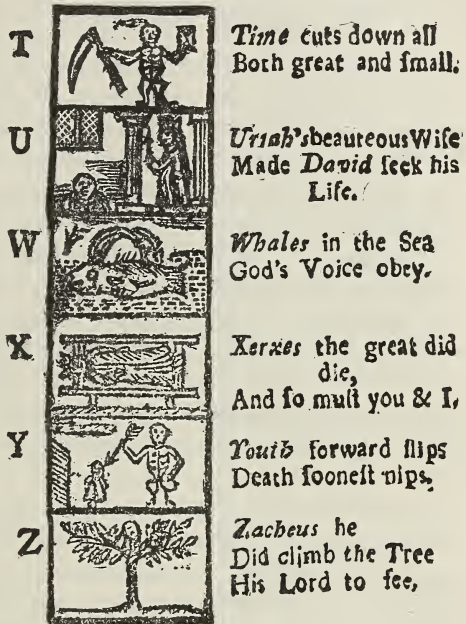 T
Time cuts down all
Both great and ſmall.
U
Uriah'sbeauteousWife
Made David ſeek his
Life.
W
Whales in the Sea
God's Voice obey.
X
Xerxes the great did
die,
And ſo muſt you & I,
Y
Youth forward ſlips
Death ſooneſt nips,
Z
Zacheus he
Did climb the Tree
His Lord to ſee,